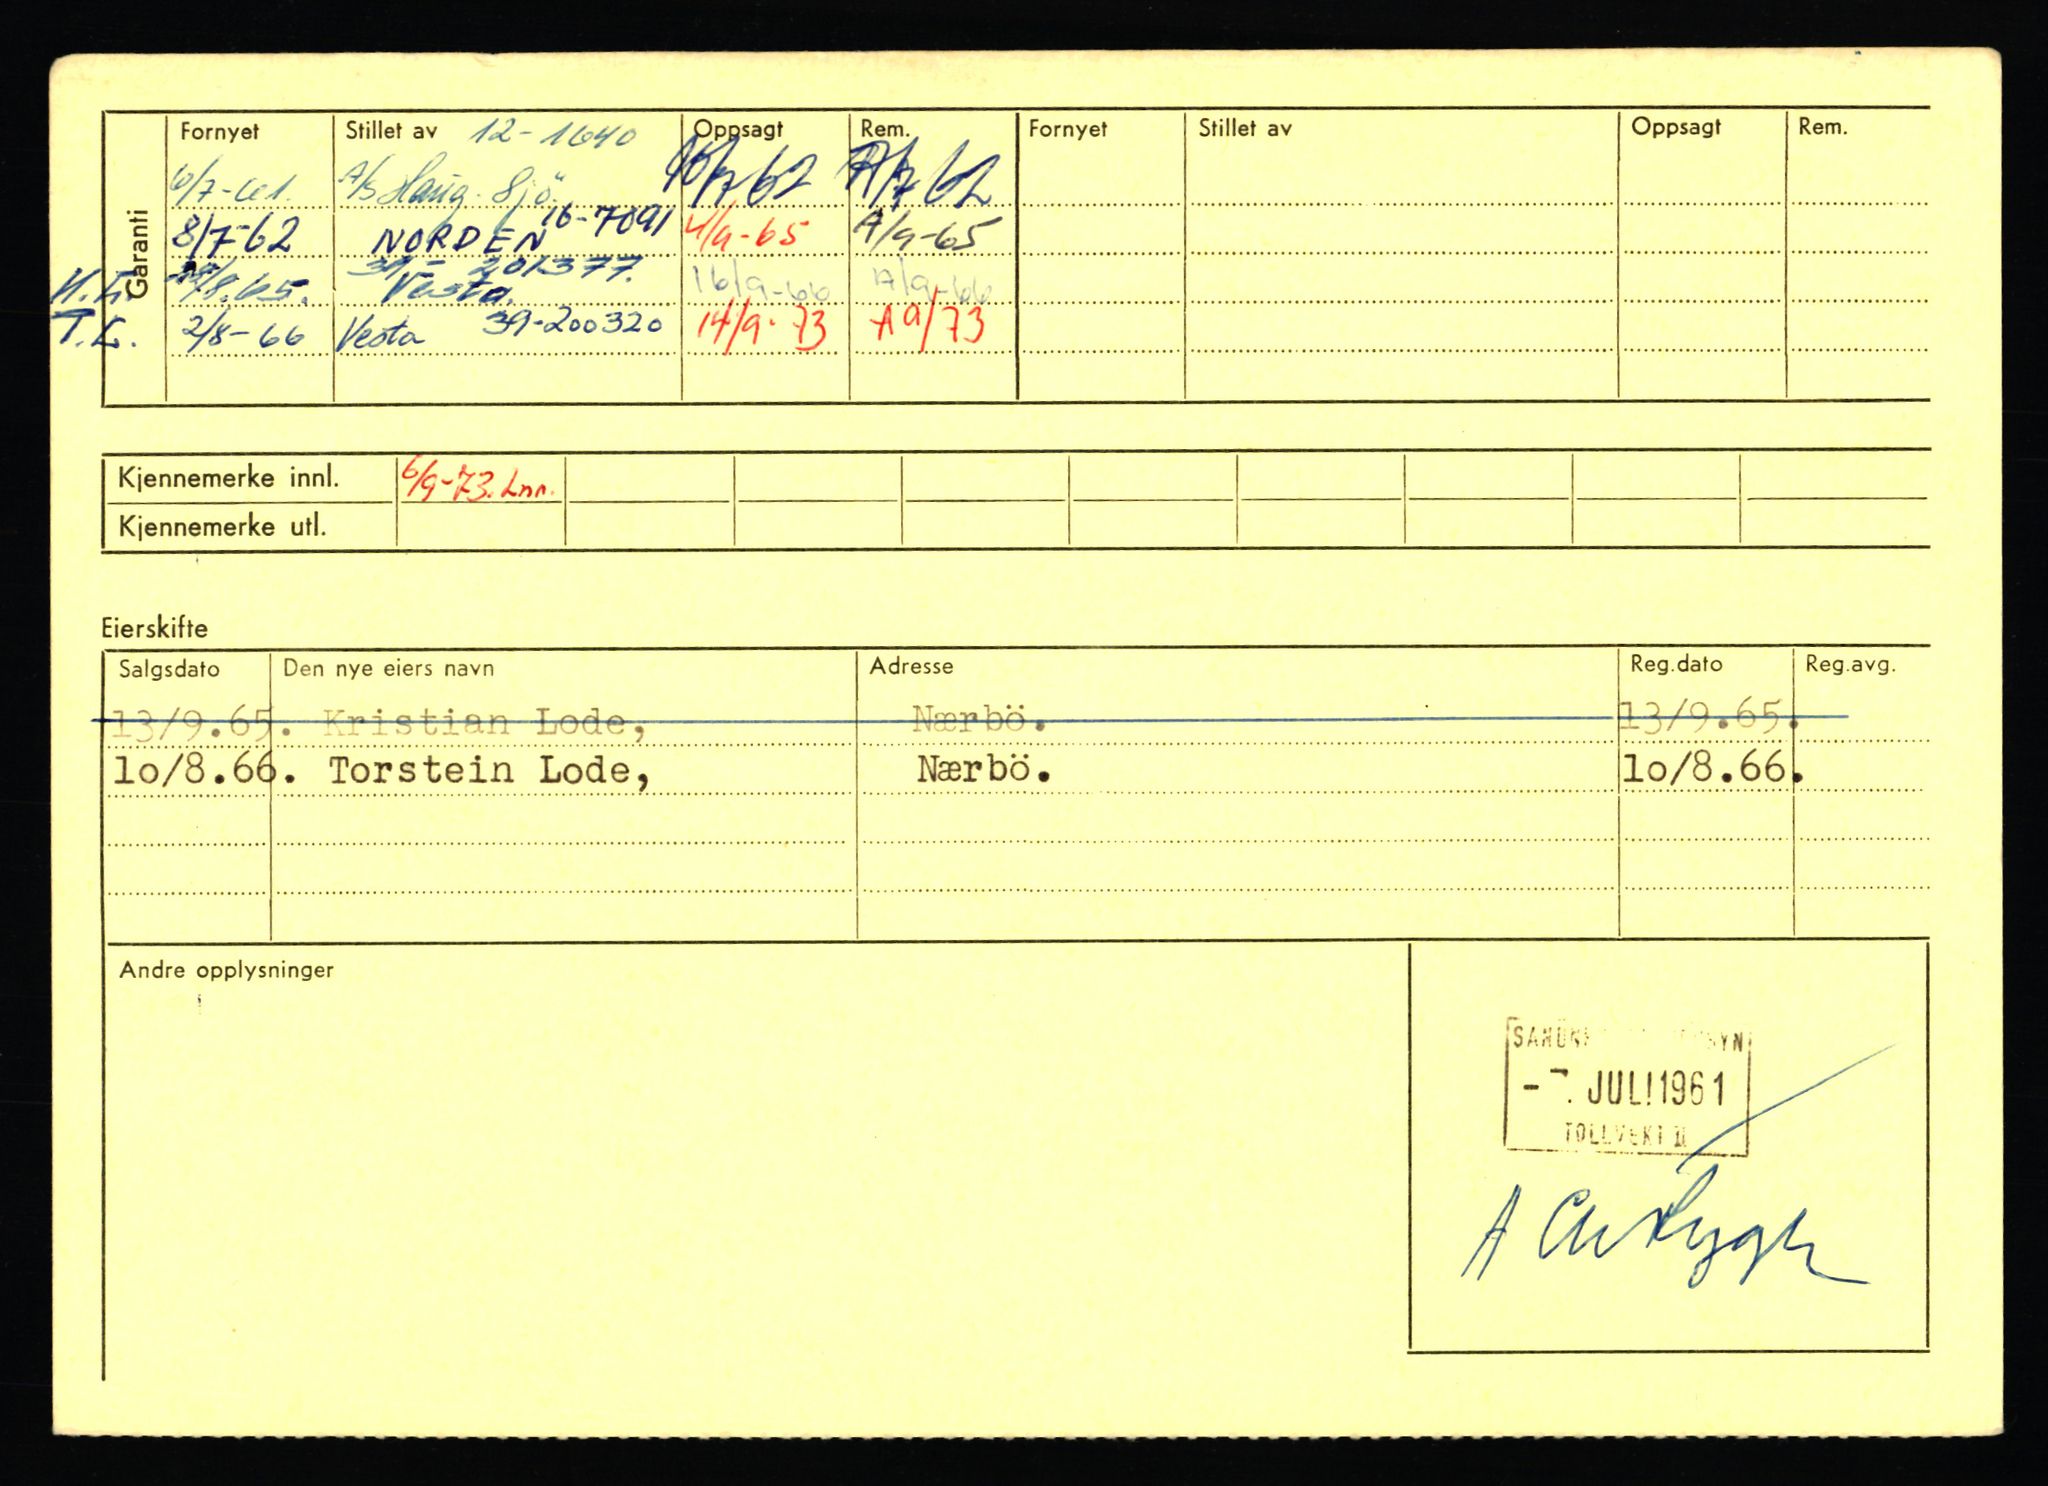 Garanti
Fornyet Stillet av 12-1640 Oppsagt Rem. Fornyet Stillet av Oppsagt Rem.
6/7-61. A/S Haug. Sjö. 62 62
8/7-62 NORDEN 16-7091 4/9-65 A/9-65
/8.65. 39-201377. Vesta. 16/9-66 A/9-66
T.L. 2/8-66 Vesta 39-200320 14/9-73 A 9/73
Kjennemerke innl. 6/9-73.
Kjennemerke utl.
Eierskifte
Salgsdato Den nye eiers navn Adresse Reg.dato Reg.avg.
13/9.65. Kristian Lode, Nærbö. 13/9.65.
lo/8.66. Torstein Lode, Nærbö. lo/8.66.
Andre opplysninger
-7. JULI 1961
A